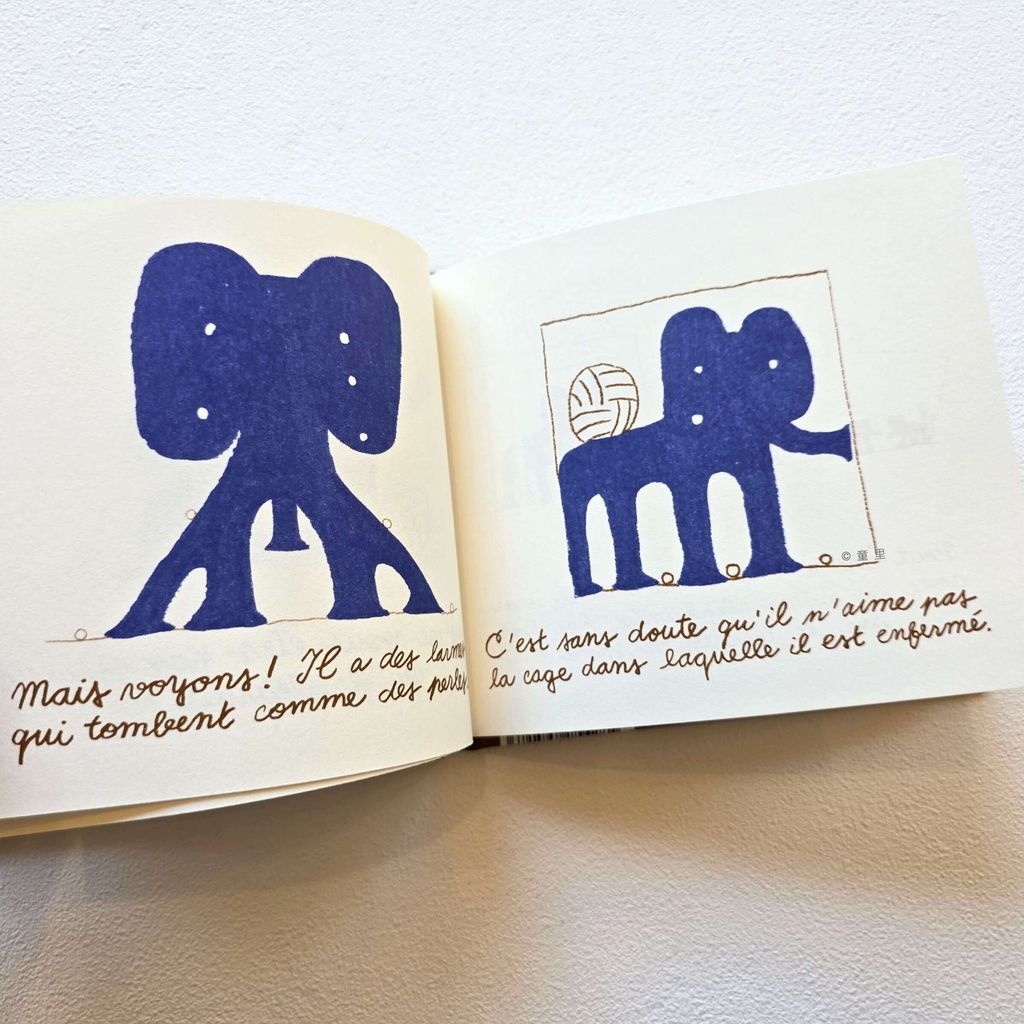 Mais voyons! Il a des larmes
qui tombent comme des perles
C'est sans doute qu'il n'aime pas
la cage dans laquelle il est enfermé.
© 童里